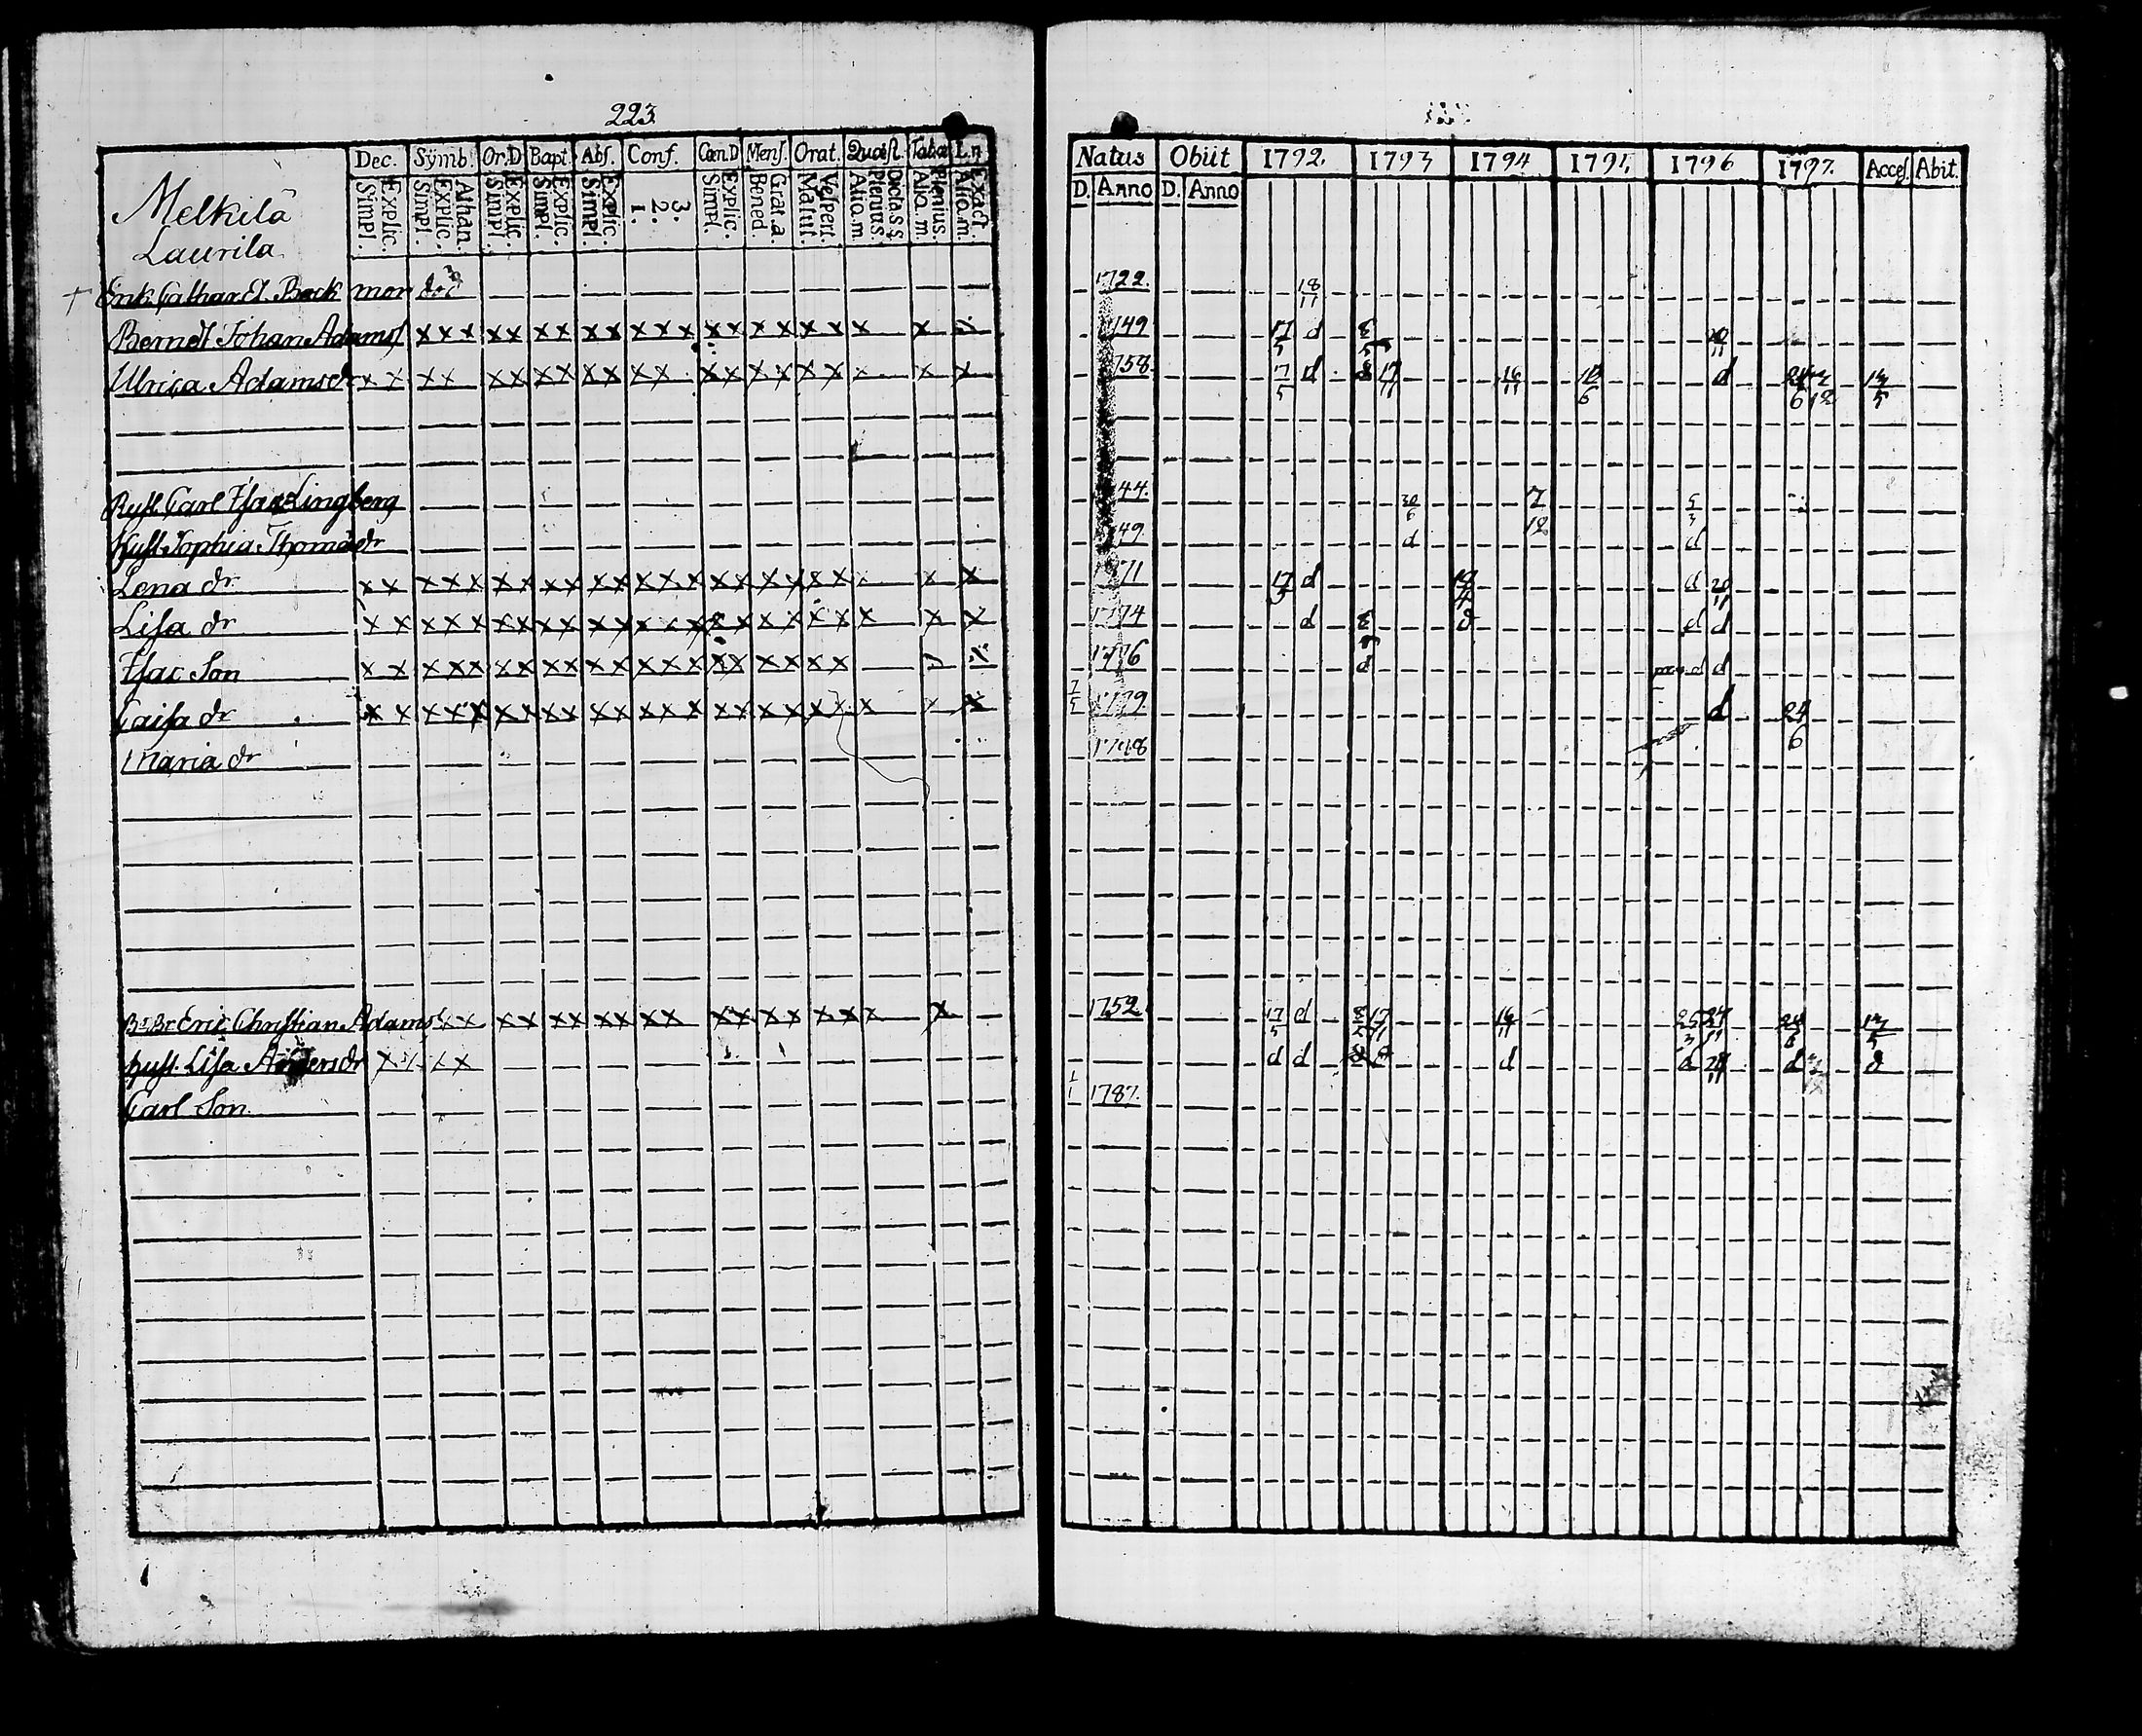 223
Dec. Symb. Or.D Bapt. Abs. Conf. Cœn.D Mens. Orat. Quæst. Tabæ L.n
Explic. Simpl. Athan. Explic. Simpl. Explic. Simpl. Explic. Simpl. Explic. Simpl. 3. 2. 1. Explic. Simpl. Grat. a. Bened. Vespert. Matut. Dicta. S.S. Plenius. Aliq. m. Plenius. Aliq. m. Exact. Aliq. m.
Melkilä
Laurila
† Enk. Cathar. El. Bock mor
Berndt Johan Adamss x x x x x x x x x x x x x x x x x x x
Ulrica Adamsdr x x x x x x x x x x x x x x x x x x x x x
Ryst. Carl Isac Lingberg
Hust. Sophia Thomædr
Lena dr x x x x x x x x x x x x x x x x x x x x
Lisa dr x x x x x x x x x x x x x x x x x x x x x x
Isac Son x x x x x x x x x x x x x x x x x x x x
Caisa dr x x x x x x x x x x x x x x x x x x x x x x
Maria dr
Br. Br Eric Christian Adamss x x x x x x x x x x x x x x x x x x x
hust. Lisa Andersdr x x x x
Carl Son
Natus Obiit 1792. 1793 1794 1795 1796 1797. Acces. Abit.
D. Anno D. Anno
1722. 18/11
149 17/5 d
758. 17/5 d 17/11 16/11 d 13/5
44. 30/6 7/12 5/3
49. d d
71 17/5 d d 20/11
1774 d d d
1776 d d d
1779 d 24/6
1752 17/5 d 17/11 16/11 24/6 13/5
d d d d d
1/1 1787.